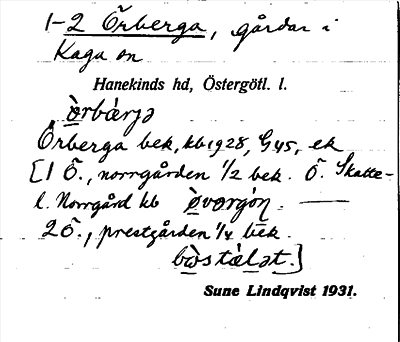 1-2 Örberga, gårdar i
Kaga sn
Hanekinds hd, Östergötl. l.
ò̱rbárjə
Örberga bek, kb 1928, G45, ek
[1 Ö., norrgården 1/2 bek. Ö. Skatte-
l. Norrgård kb ò̱vərgón. —
2 Ö., prestgården 1/4 bek.
bò̱stálət.]
Sune Lindqvist 1931.